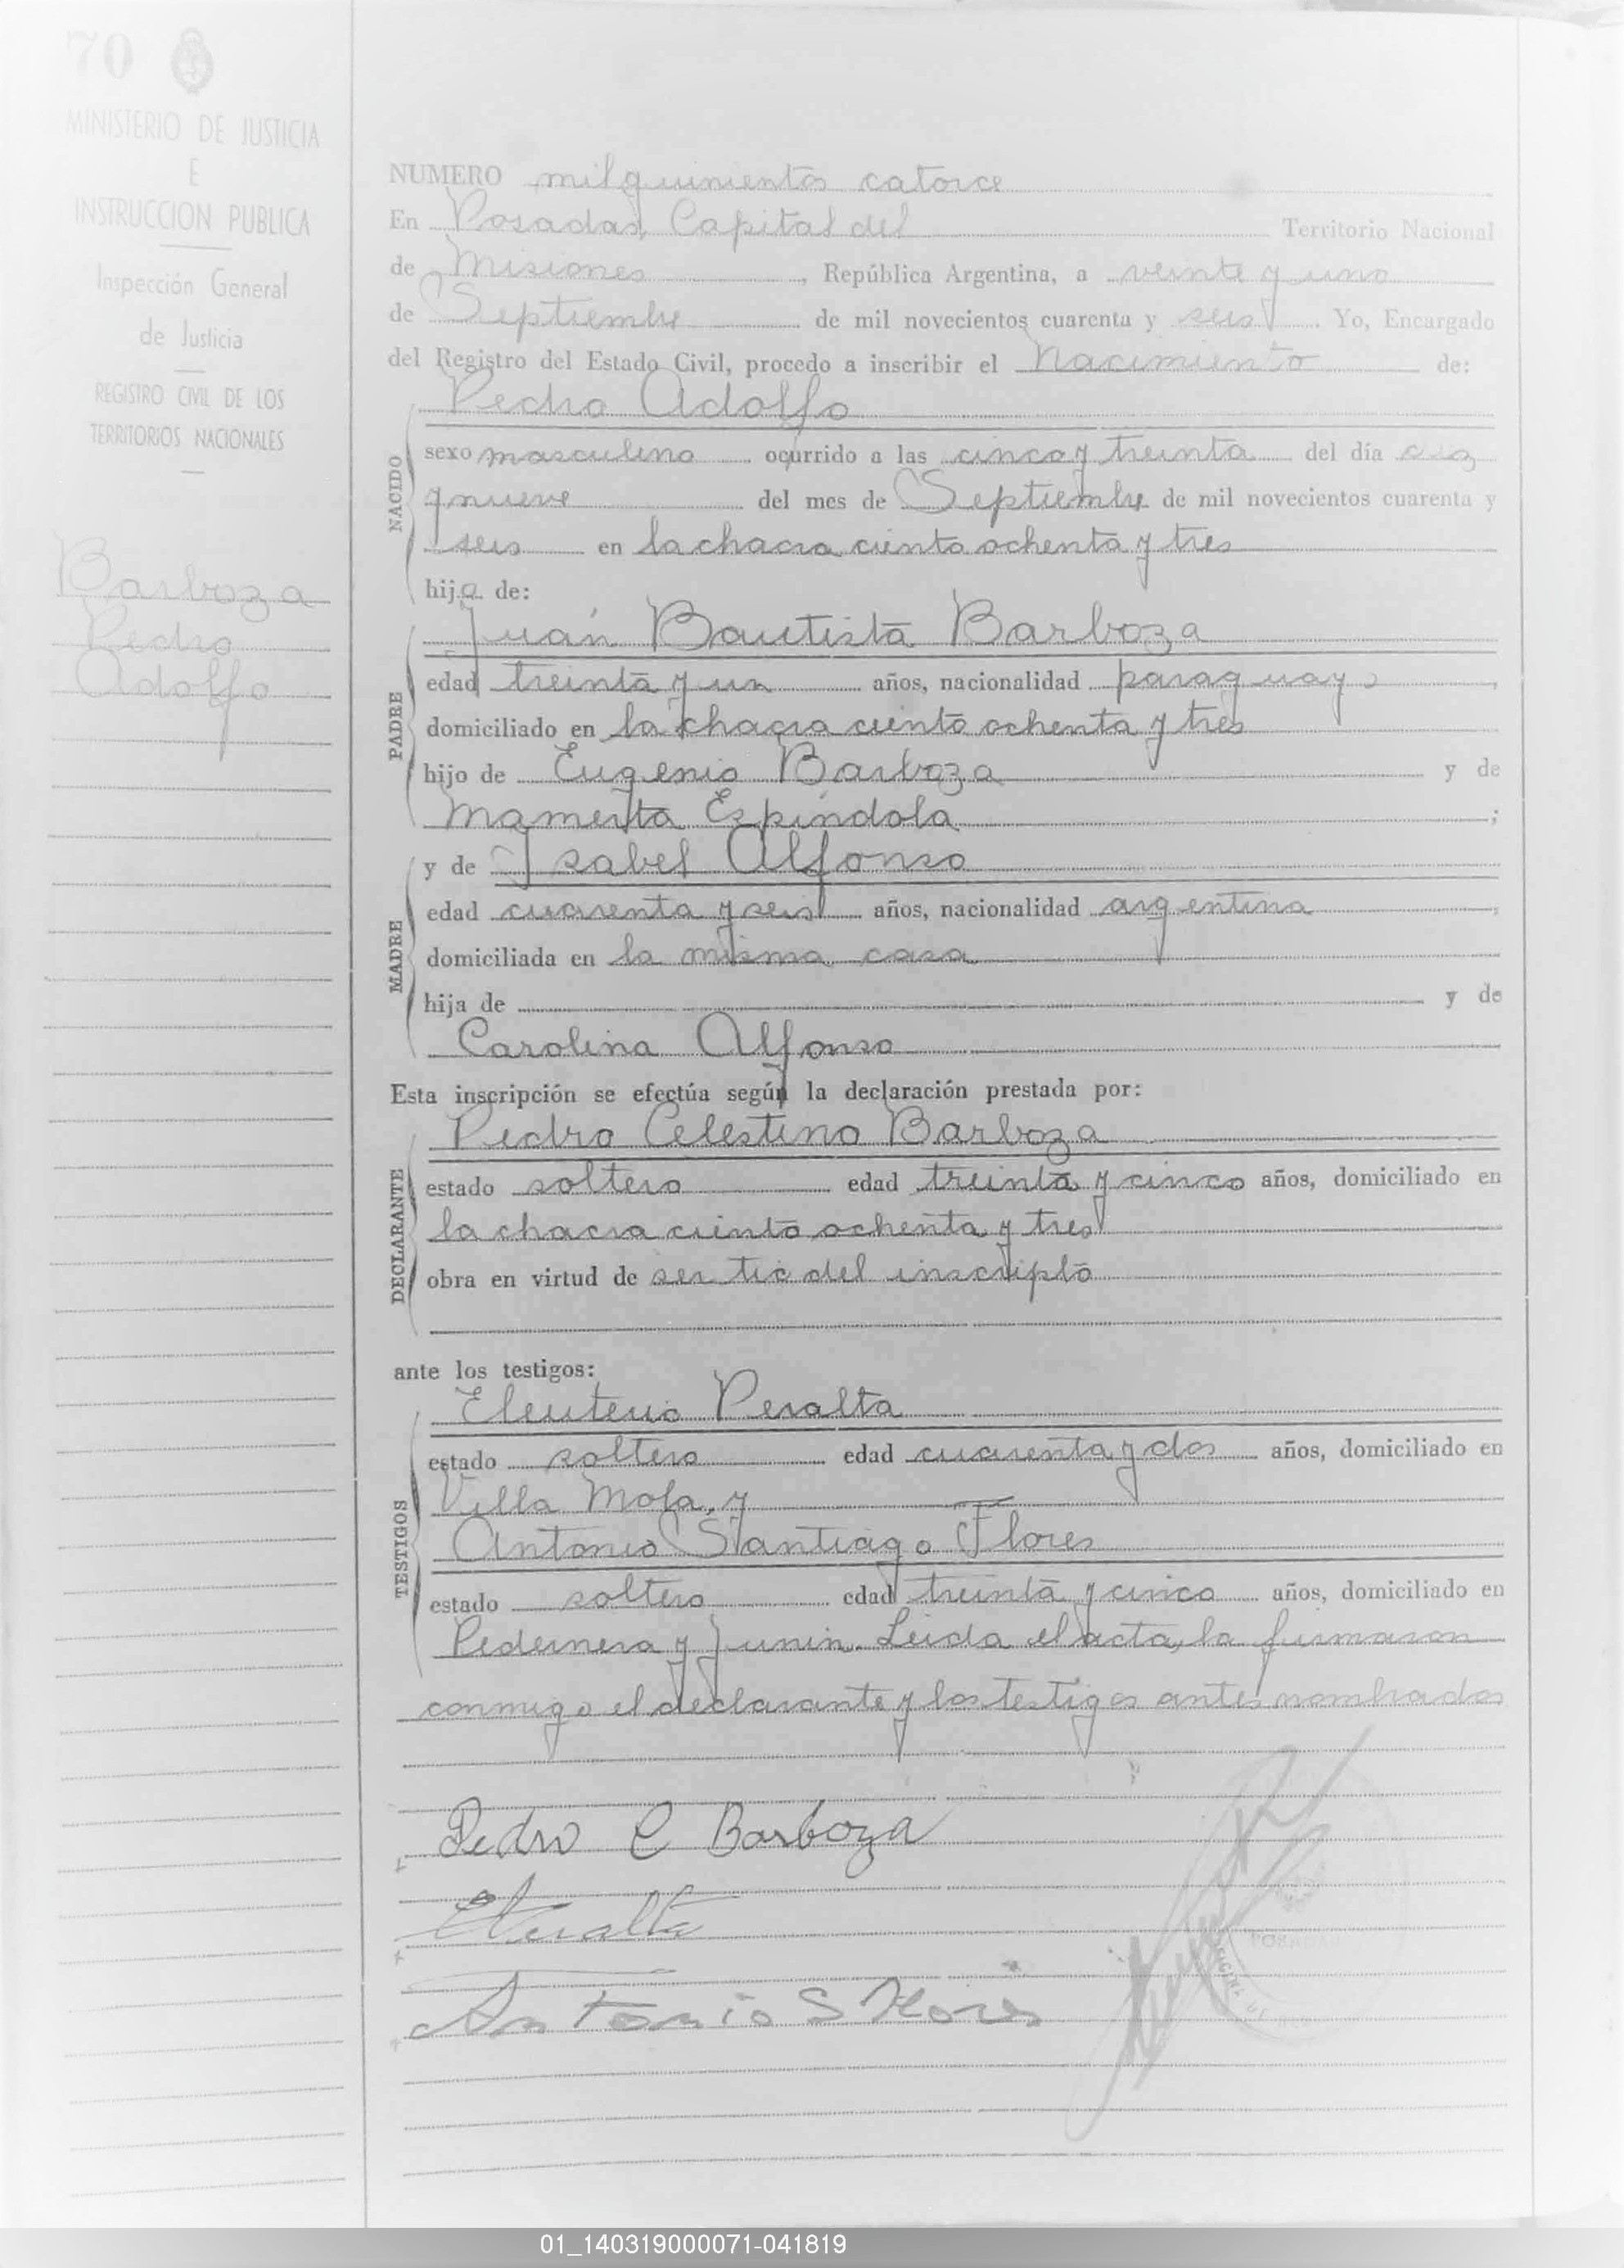 70
MINISTERIO DE JUSTICIA
E
INSTRUCCION PUBLICA
Inspección General
de Justicia
REGISTRO CIVIL DE LOS
TERRITORIOS NACIONALES
Barboza
Pedro
Adolfo
NUMERO mil quinientos catorce
En Posadas, Capital del Territorio Nacional
de Misiones, República Argentina, a veinte y uno
de Septiembre de mil novecientos cuarenta y seis. Yo, Encargado
del Registro del Estado Civil, procedo a inscribir el Nacimiento de:
NACIDO
Pedro Adolfo
sexo masculino ocurrido a las cinco y treinta del día diez
y nueve del mes de Septiembre de mil novecientos cuarenta y
seis en la chacra ciento ochenta y tres
hijo de:
PADRE
Juan Bautista Barboza
edad treinta y un años, nacionalidad paraguayo,
domiciliado en la chacra ciento ochenta y tres
hijo de Eugenio Barboza y de
Mamerta Ezpíndola;
MADRE
y de Isabel Alfonso
edad cuarenta y seis años, nacionalidad argentina,
domiciliada en la misma casa
hija de y de
Carolina Alfonso
Esta inscripción se efectúa según la declaración prestada por:
DECLARANTE
Pedro Celestino Barboza
estado soltero edad treinta y cinco años, domiciliado en
la chacra ciento ochenta y tres
obra en virtud de ser tio del inscripto
ante los testigos:
TESTIGOS
Eleuterio Peralta
estado soltero edad cuarenta y dos años, domiciliado en
Villa Mola, y
Antonio Santiago Flores
estado soltero edad treinta y cinco años, domiciliado en
Pedernera y Junin. Leida el acta, la firmaron
conmigo el declarante y los testigos antes nombrados
Pedro C Barboza
EPeralta
Antonio S Flores
POSADAS
01_140319000071-041819